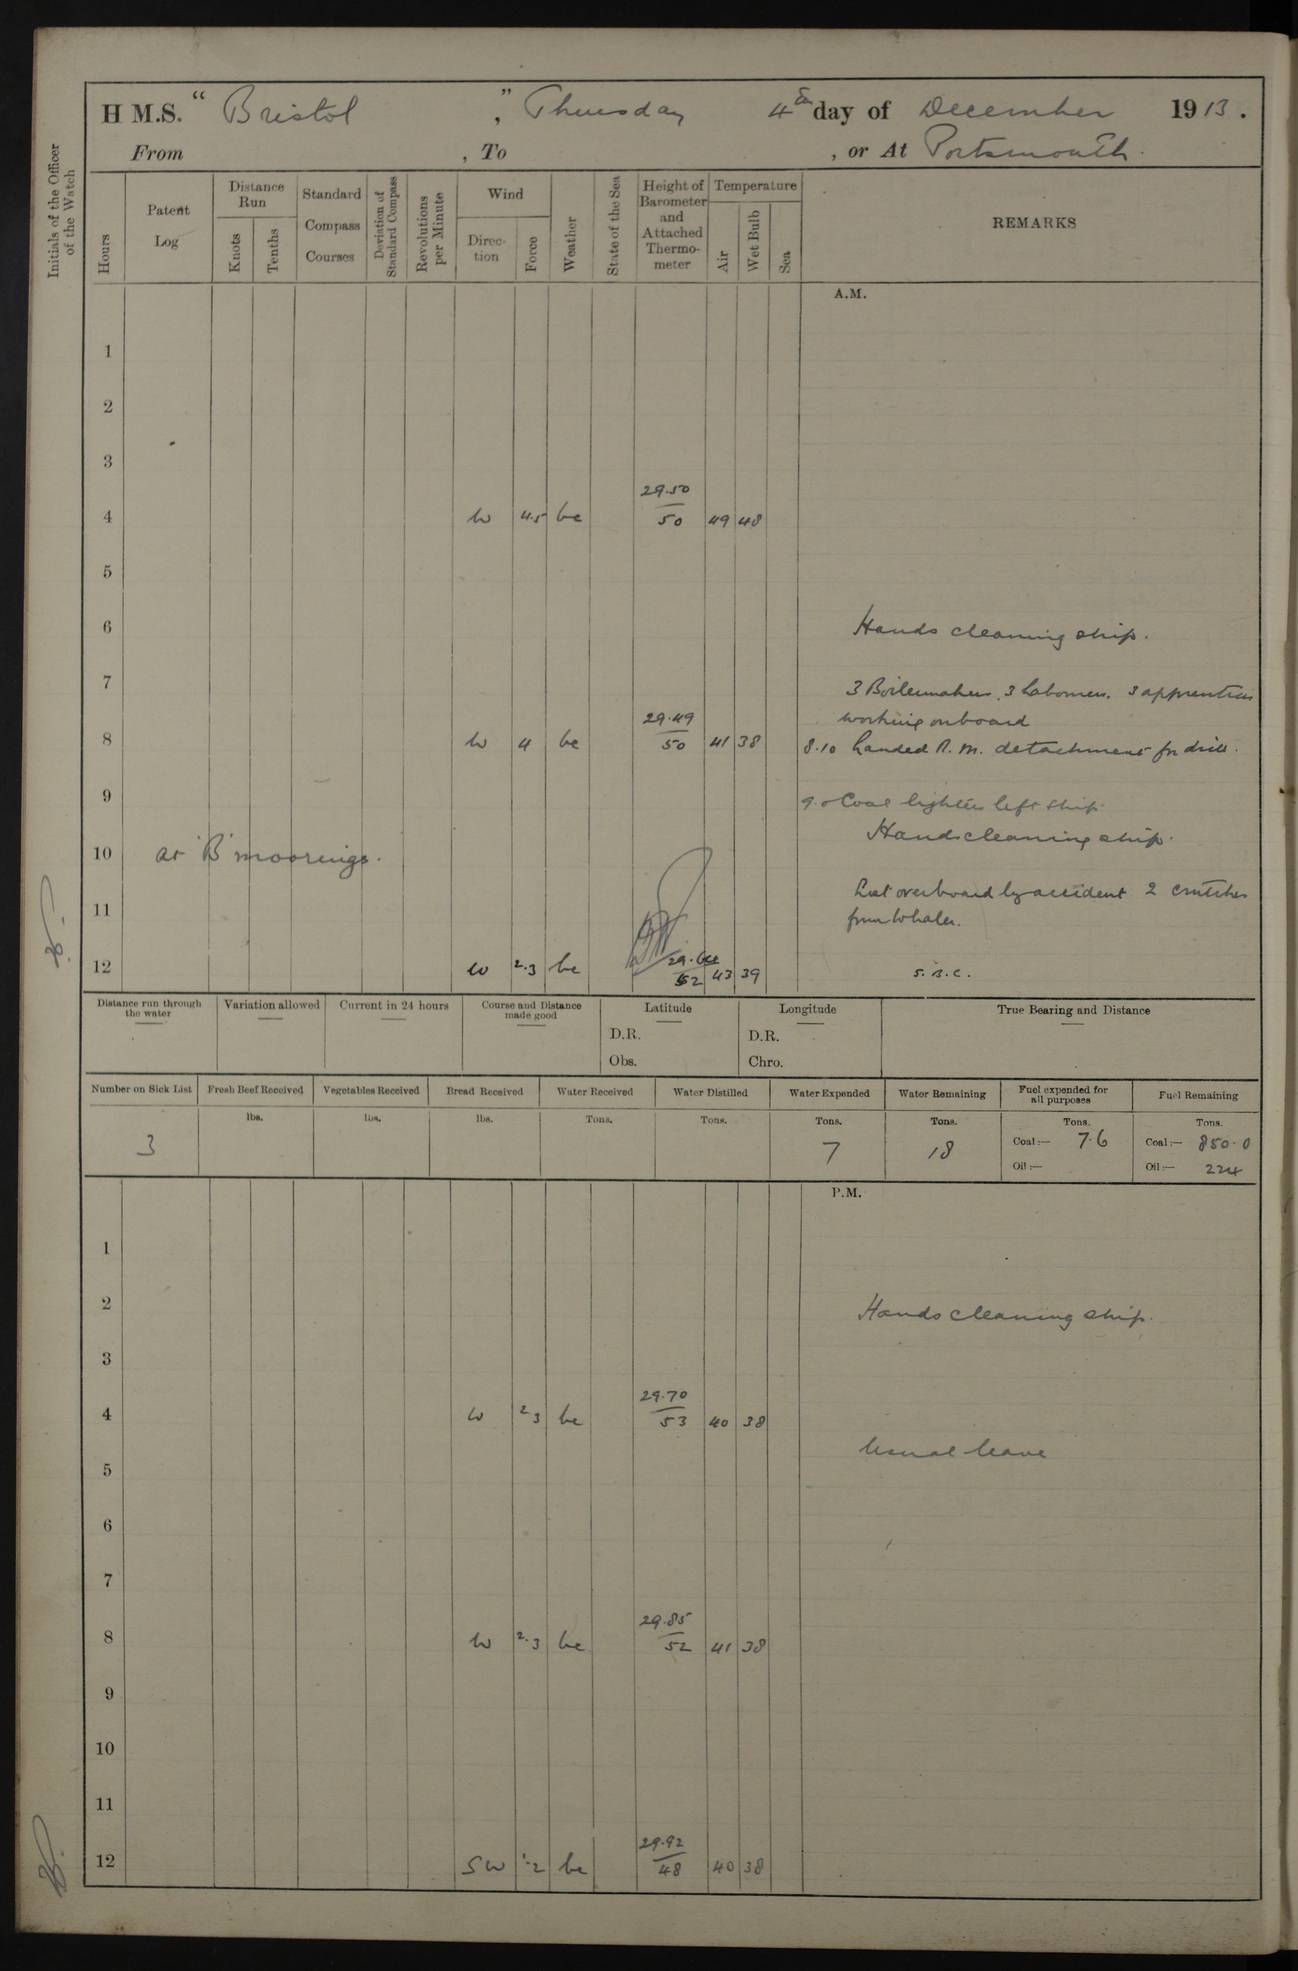 H M.S. “ Bristol ”, Thursday 4th day of December 1913.
From , To , or At Portsmouth.
Initials of the Officer of the Watch
Hours
Patent Log
Distance Run
Knots
Tenths
Standard Compass Courses
Deviation of Standard Compass
Revolutions per Minute
Wind
Direction
Force
Weather
State of the Sea
Height of Barometer and Attached Thermometer
Temperature
Air
Wet Bulb
Sea
REMARKS
A.M.
1
2
3
29.50
4 W 4.5 bc 50 49 48
5
6 Hands cleaning ship.
7 3 Boilermakers, 3 Labourers. 3 apprentices
29.49 working onboard
8 W 4 bc 50 41 38 8.10 Landed R.M. detachment for drill.
9 9.0 Coal lighters left ship.
Hands cleaning ship.
10 at 'B' moorings.
Lost overboard by accident 2 crutches
11 from Whaler.
12 W 2.3 bc 52 43 39 S.R.C.
Distance run through the water
Variation allowed
Current in 24 hours
Course and Distance made good
Latitude
D.R.
Obs.
Longitude
D.R.
Chro.
True Bearing and Distance
Number on Sick List Fresh Beef Received Vegetables Received Bread Received Water Received Water Distilled Water Expended Water Remaining Fuel expended for all purposes Fuel Remaining
lbs. lbs. lbs. Tons. Tons. Tons. Tons. Tons. Tons.
3 7 18 Coal:— 7.6 Coal:— 850.0
Oil:— Oil:— 224
P.M.
1
2 Hands cleaning ship.
3
29.70
4 W 2.3 bc 53 40 38
Usual leave
5
6
7
29.85
8 W 2.3 bc 52 41 38
9
10
11
29.92
12 SW 1.2 bc 48 40 38